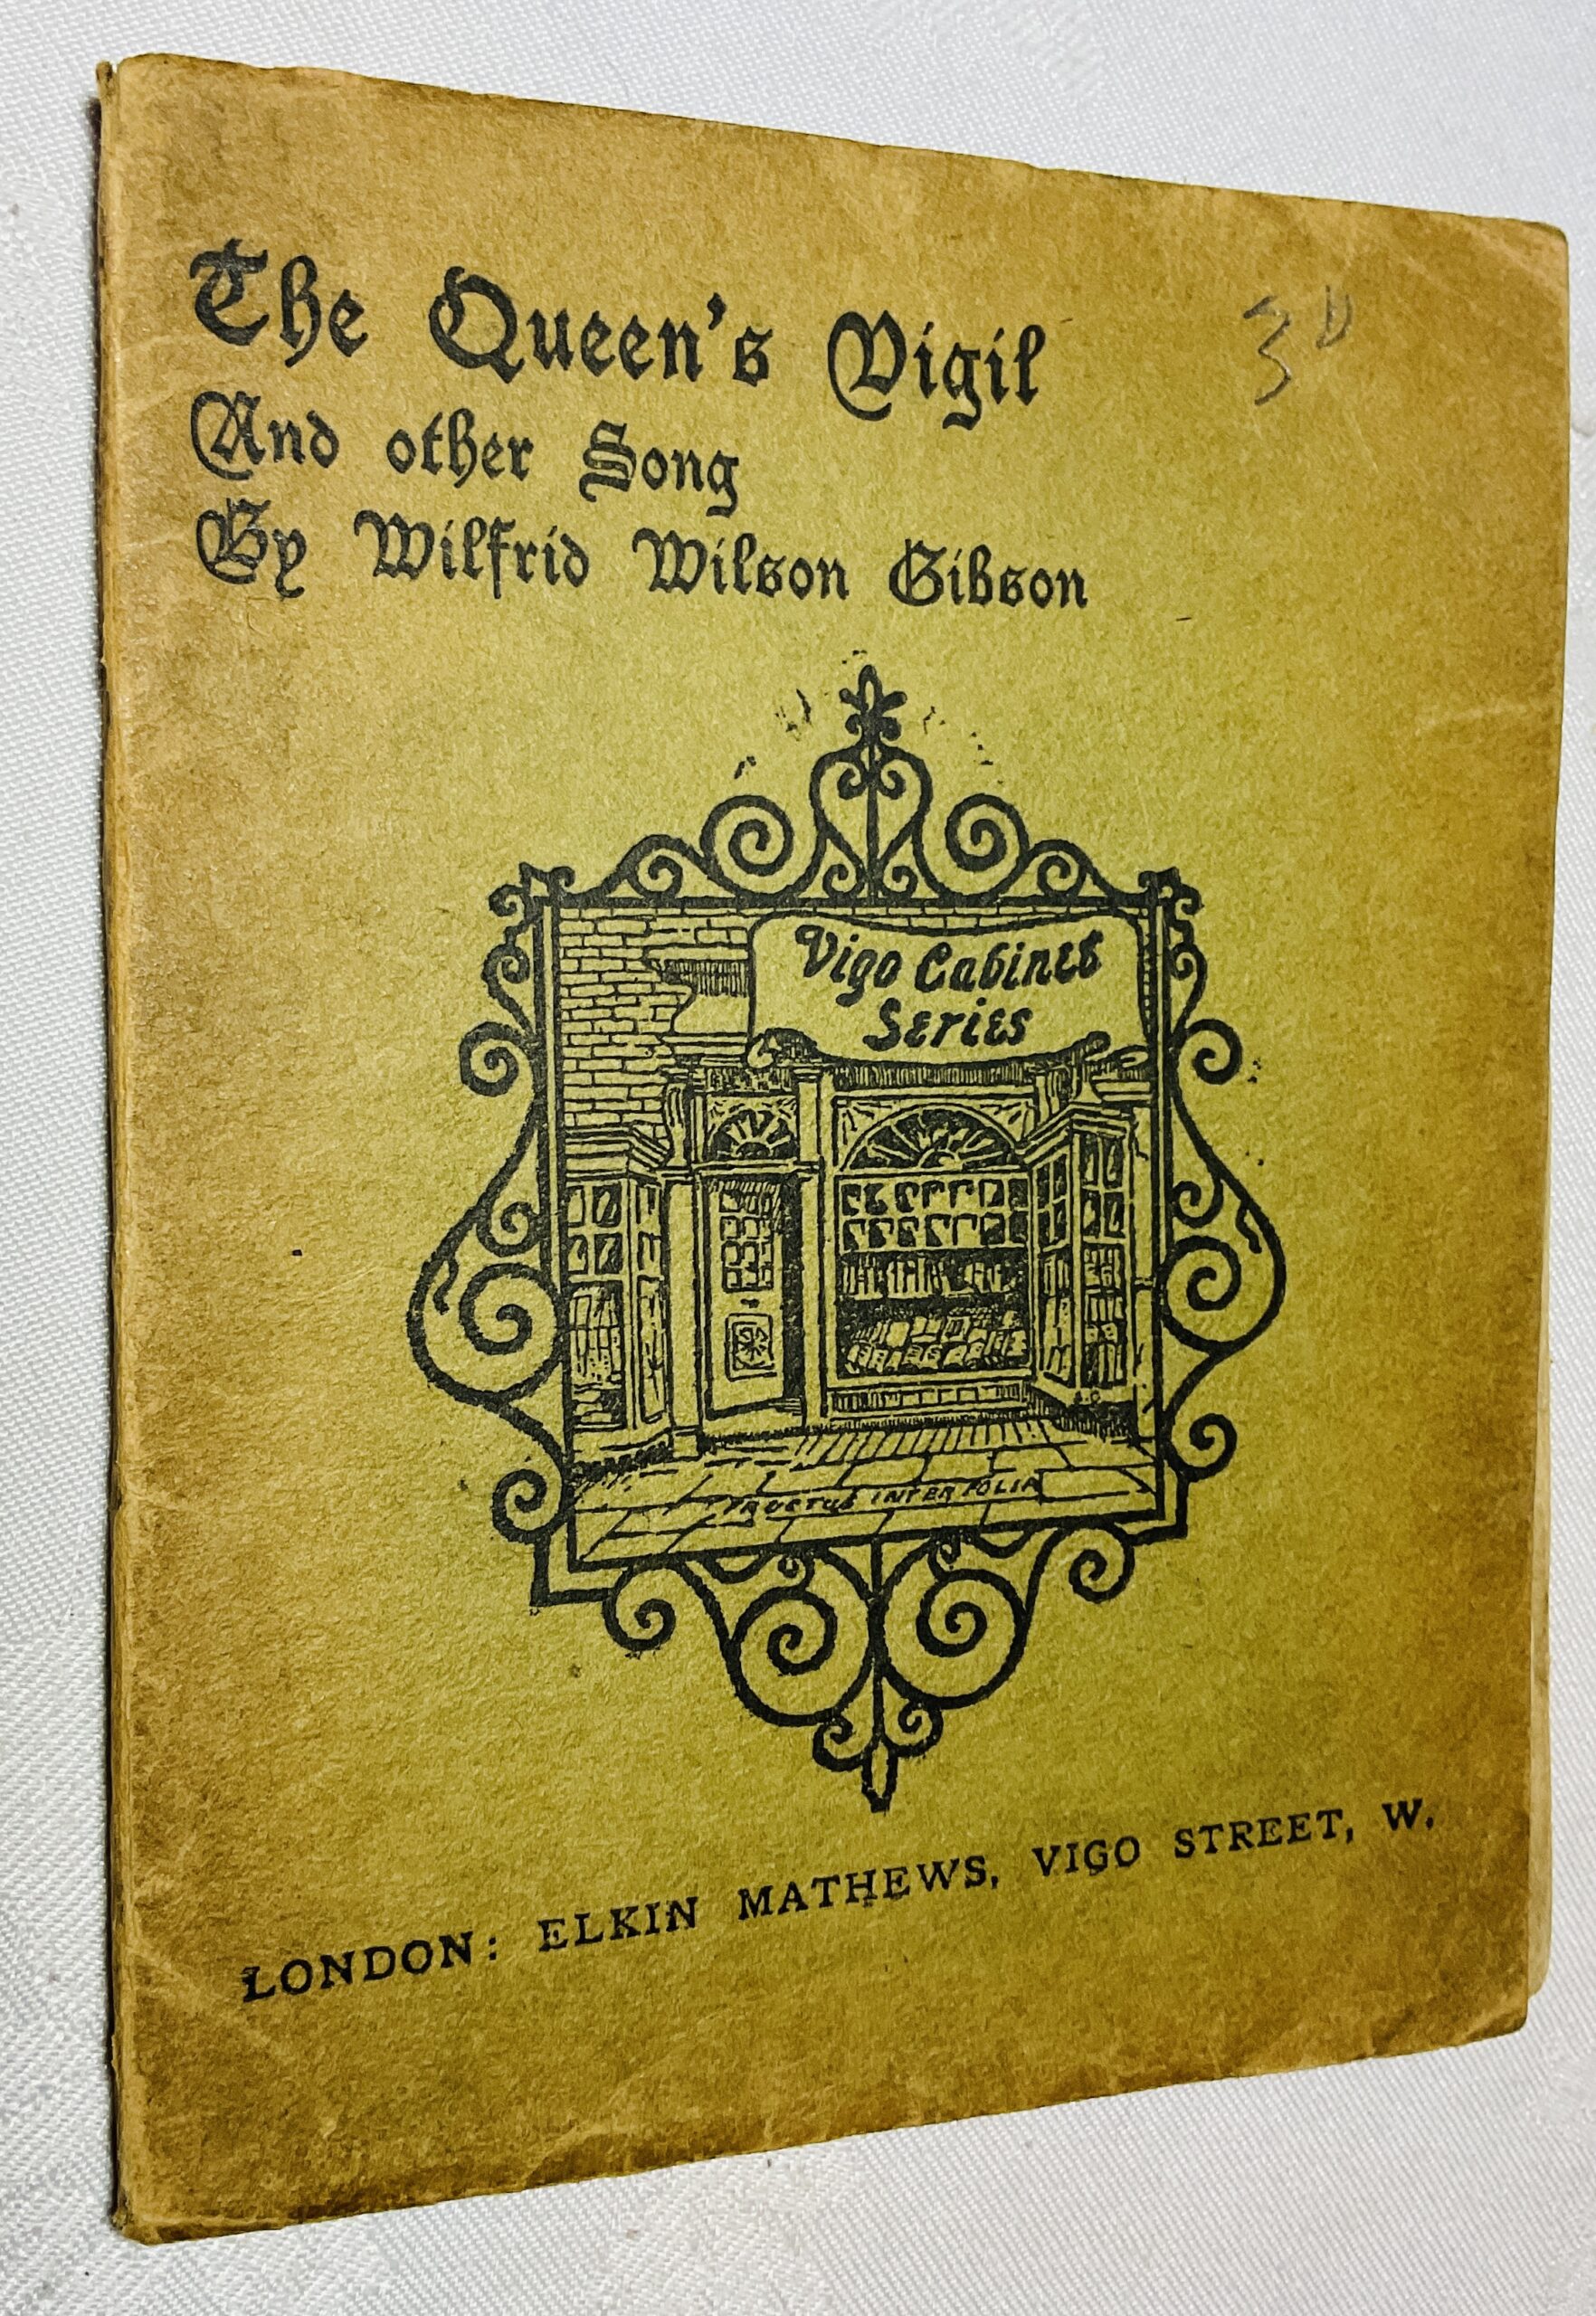 The Queen's Vigil
And other Song
By Wilfrid Wilson Gibson
3D
Vigo Cabinet
Series
FRUCTUS INTER FOLIA
LONDON: ELKIN MATHEWS, VIGO STREET, W.